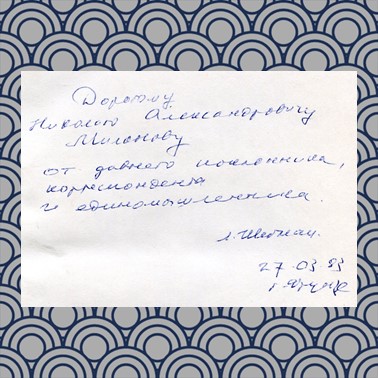 Дорогому
Николаю Александровичу
Миланову
от давнего поклонника,
корреспондента
и единомышленника.
Л. Шейман.
27.03 83
г. Фрунзе